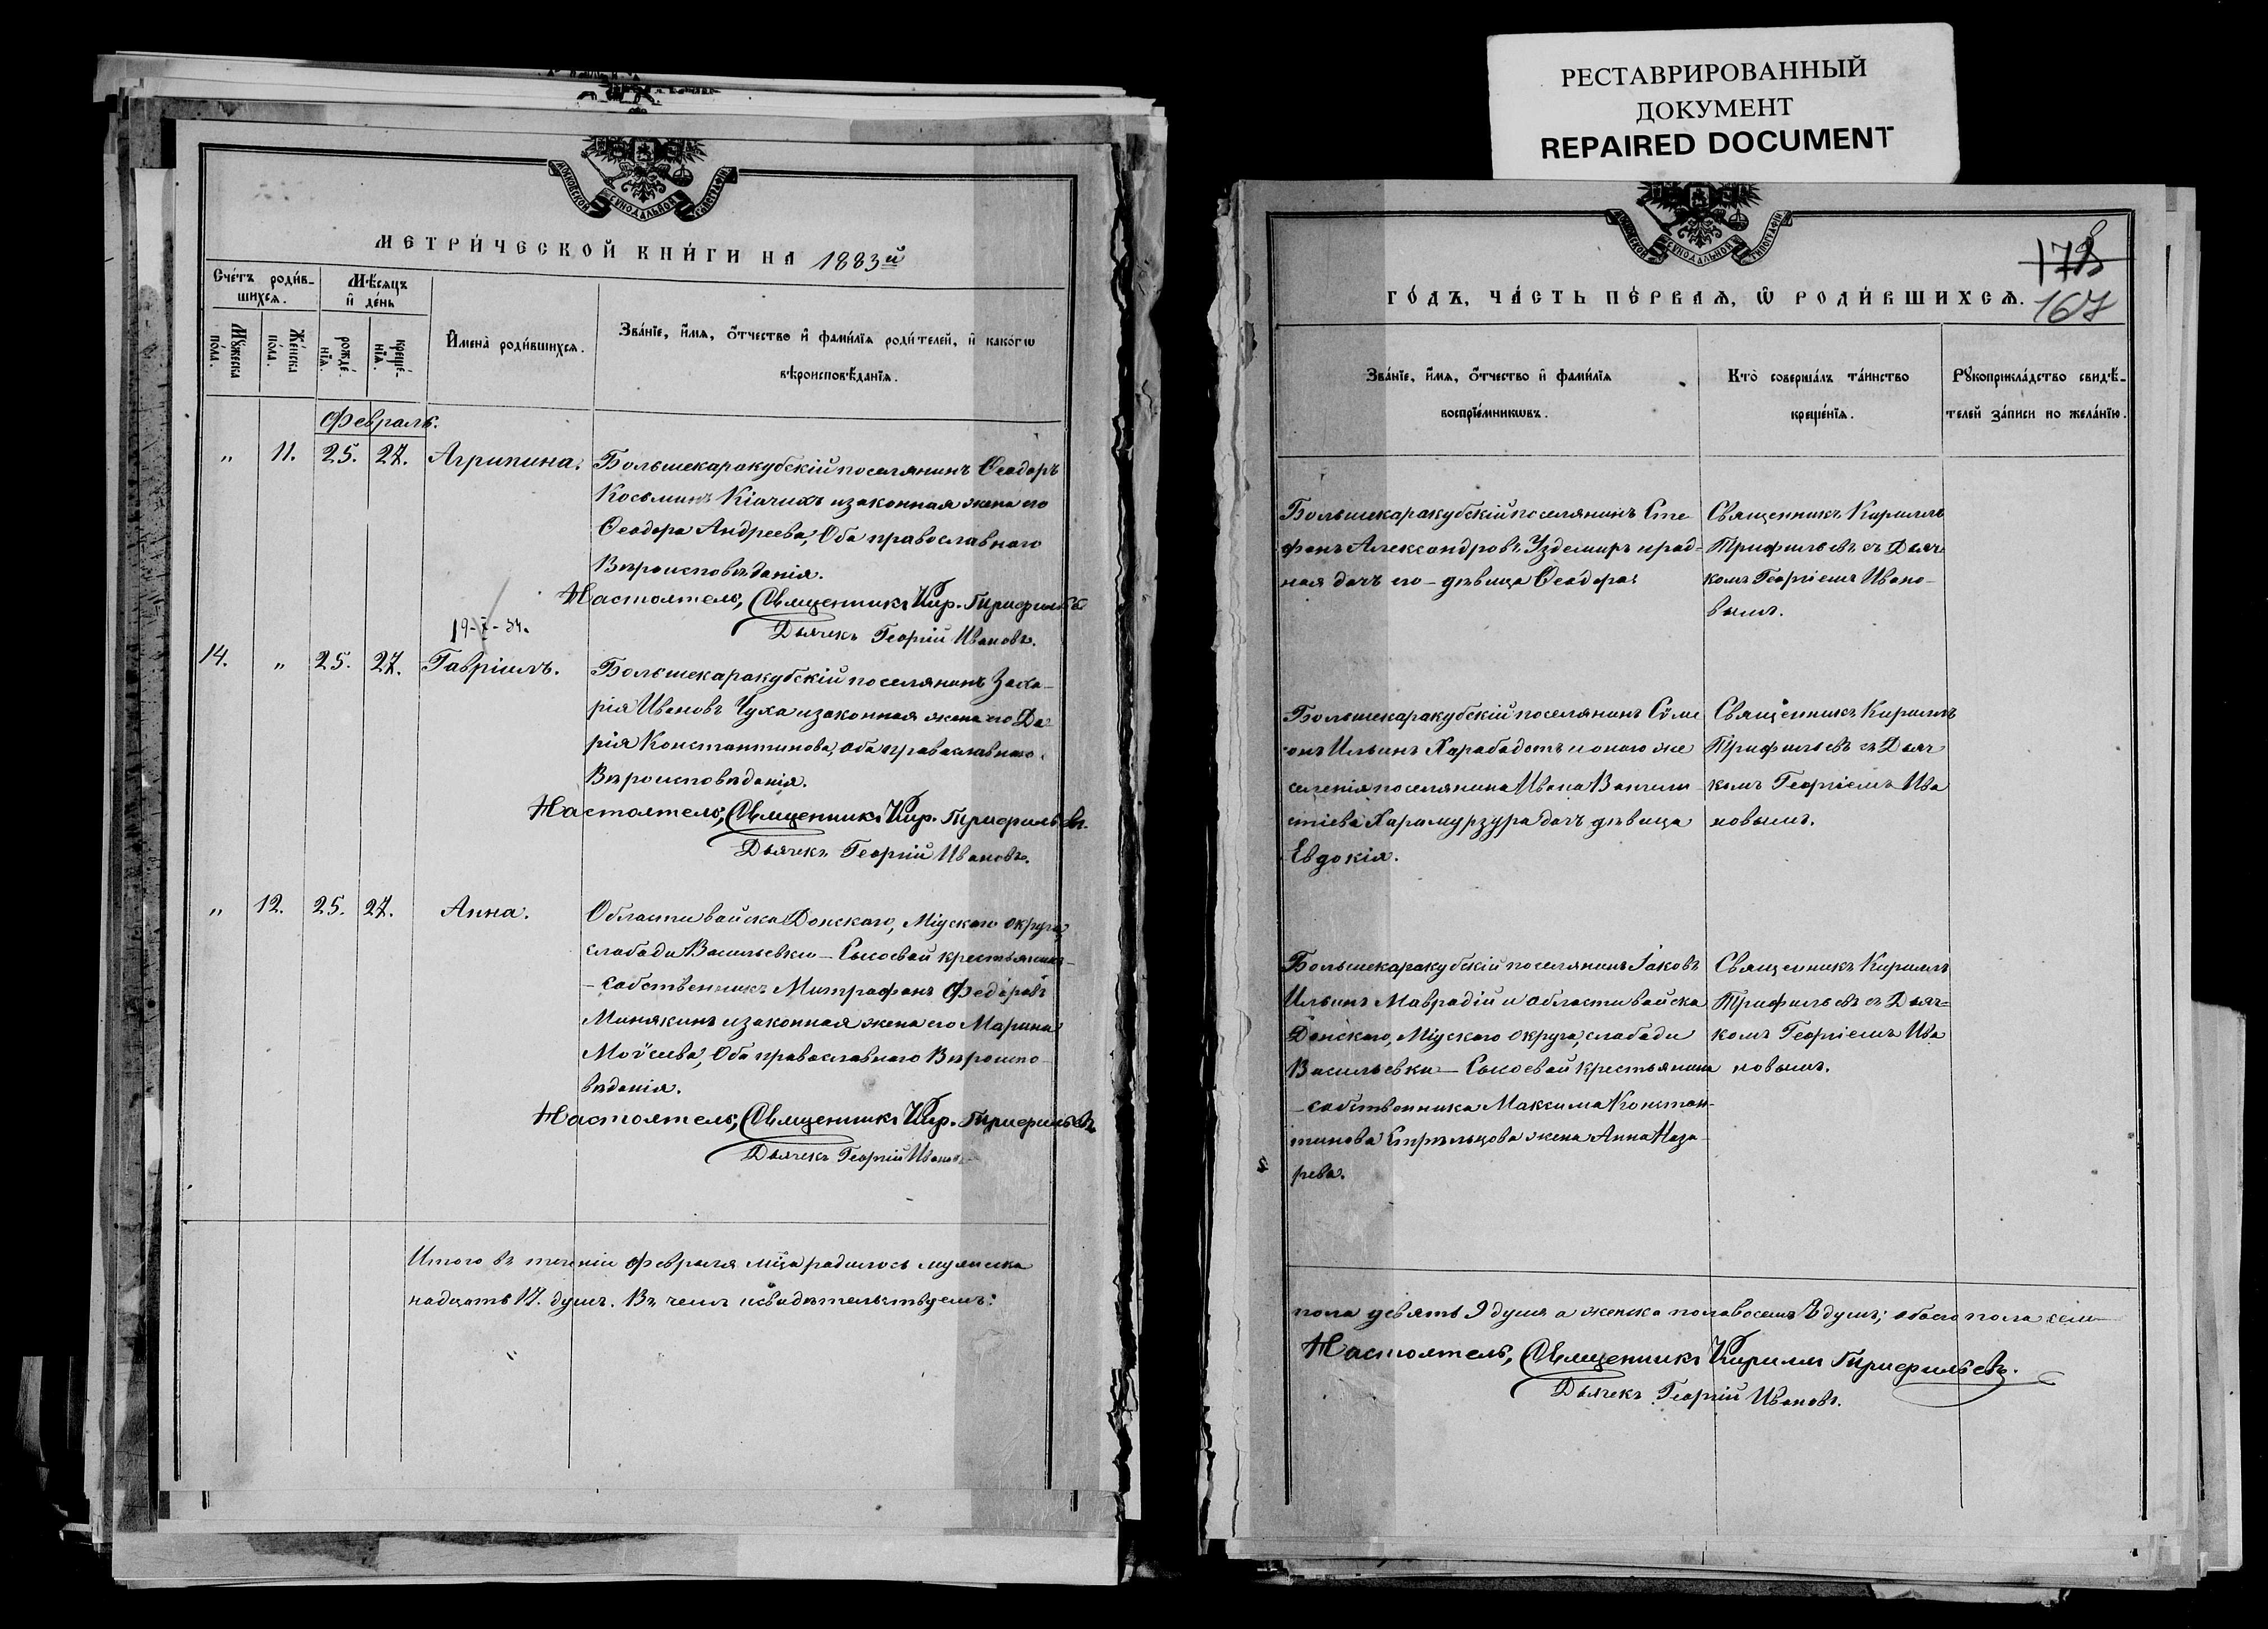 РЕСТАВРИРОВАННЫЙ
ДОКУМЕНТ
REPAIRED DOCUMENT
МОСКОВСКОЙ СѴНОДАЛЬНОЙ ТИПОГРАФІИ
МЕТРИ́ЧЕСКОЙ КНИ́ГИ НА 1883й
Сче́тъ роди́в-
шихсѧ.
Мѣ́сѧцъ
и҆ де́нь
Мꙋ́жеска
пола.
Же́нска
по́ла.
рожде́-
нїѧ.
креще́-
нїѧ.
И҆мена̀ роди́вшихсѧ.
Зва́нїе, и҆́мѧ, ѻ҆́тчество и҆ фами́лїѧ роди́телей, и҆ како́гѡ
вѣроисповѣ́данїѧ.
Февраль.
„ 11. 25. 27. Агрипина.
Большекаракубскій поселянинъ Ѳеодоръ
Косьминъ Кіачихъ и законная жена его
Ѳеодора Андреева, Оба православнаго
Вѣроисповѣданія.
Настоятель, Священникъ Кир. Трифильевъ
Дьячекъ Георгій Ивановъ.
14. „ 25. 27. Гавріилъ.
Большекаракубскій поселянинъ Заха-
рія Ивановъ Чуха и законная жена его Да
рія Константинова, оба православнаго
Вѣроисповѣданія.
Настоятель, Священникъ Кир. Трифильевъ.
Дьячекъ Георгій Ивановъ.
„ 12. 25. 27. Анна.
Области войска Донскаго, Міускаго округа,
слободы Васильевки – крестьянинъ-
– собственникъ Митрофанъ Федоровъ
Минякинъ и законная жена его Марина
Моѵсеева, Оба православнаго Вѣроиспо-
вѣданія.
Настоятель, Священникъ Кир. Трифильевъ
Дьячекъ Георгій Ивановъ
Итого въ теченіи февраля мца родилось мужеска
надцать 17. душъ. Въ чемъ и свидѣтельствуемъ:
МОСКОВСКОЙ СѴНОДАЛЬНОЙ ТИПОГРАФІИ
167
ГО́ДЪ, ЧА́СТЬ ПЕ́РВАѦ, Ѡ҆ РОДИ́ВШИХСѦ.
Зва́нїе, и҆́мѧ, ѻ҆́тчество и҆ фами́лїѧ
воспрїе́мникѡвъ.
Кто̀ соверша́лъ та́инство
креще́нїѧ.
Рꙋкоприкла́дство свидѣ́-
телей за́писи по жела́нїю.
Большекаракубскій поселянинъ Сте
фанъ Александровъ Уздемиръ и род-
ная дочь его – дѣвица Ѳеодора.
Священникъ Кириллъ
Трифильевъ съ Дьяч-
комъ Георгіемъ Ивано-
вымъ.
Большекаракубскій поселянинъ Сѵме
онъ Ильинъ Харабадотъ и оного же
селенія поселянина Ивана
Харамурзура дочь дѣвица
Евдокія.
Священникъ Кириллъ
Трифильевъ съ Дьяч
комъ Георгіемъ Ива
новымъ.
Большекаракубскій поселянинъ Іаковъ
Ильинъ Маврадій и области войска
Донскаго, Міускаго округа, слободы
Васильевки – крестьянина
– собственника Максима Констан-
тинова Стрѣльцова жена Анна Наза-
рева.
Священникъ Кириллъ
Трифильевъ съ Дьяч-
комъ Георгіемъ Ива
новымъ.
пола девять 9 душъ а женска пола восемь 8 душъ; обоего пола семь-
Настоятель, Священникъ Кириллъ Трифильевъ.
Дьячекъ Георгій Ивановъ.